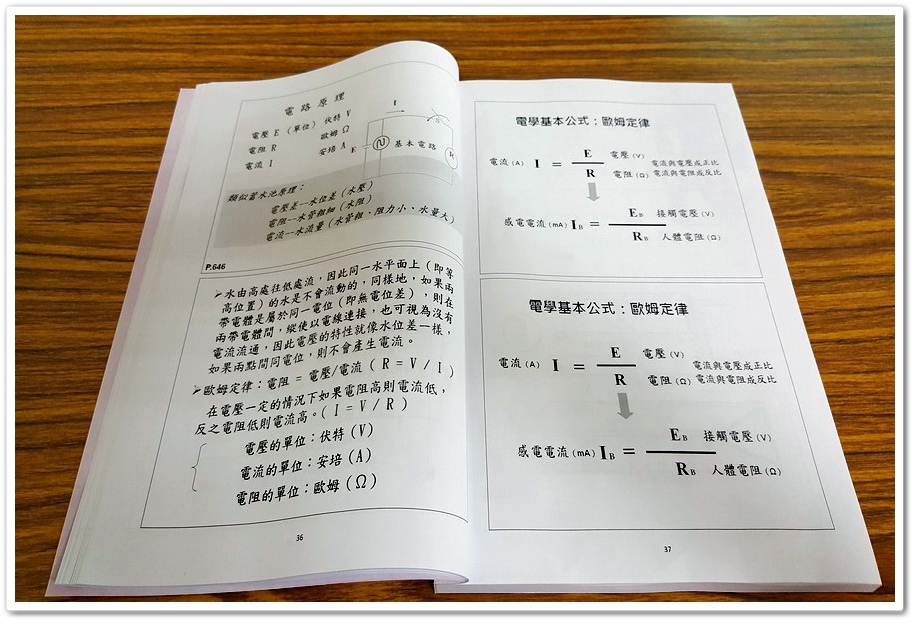 電路原理
電壓 E（單位）伏特 V
電阻 R 歐姆 Ω
電流 I 安培 A
I
E
基本電路
R
類似蓄水池原理：
電壓差─水位差（水壓）
電阻─水管粗細（水阻）
電流─水流量（水管粗、阻力小、水量大）
P.646
➢水由高處往低處流，因此同一水平面上（即等
高位置）的水是不會流動的，同樣地，如果兩
帶電體是屬於同一電位（即無電位差），則在
兩帶電體間，縱使以電線連接，也可視為沒有
電流流通，因此電壓的特性就像水位差一樣，
如果兩點間同電位，則不會產生電流。
➢歐姆定律：電阻 = 電壓/電流（R = V / I）
在電壓一定的情況下如果電阻高則電流低，
反之電阻低則電流高。( I = V / R )
電壓的單位：伏特（V）
電流的單位：安培（A）
電阻的單位：歐姆（Ω）
36
電學基本公式：歐姆定律
電流（A） I = E / R 電壓（V） 電阻（Ω）
電流與電壓成正比
電流與電阻成反比
感電電流（mA）I B = E B / R B 接觸電壓（V） 人體電阻（Ω）
電學基本公式：歐姆定律
電流（A） I = E / R 電壓（V） 電阻（Ω）
電流與電壓成正比
電流與電阻成反比
感電電流（mA）I B = E B / R B 接觸電壓（V） 人體電阻（Ω）
37